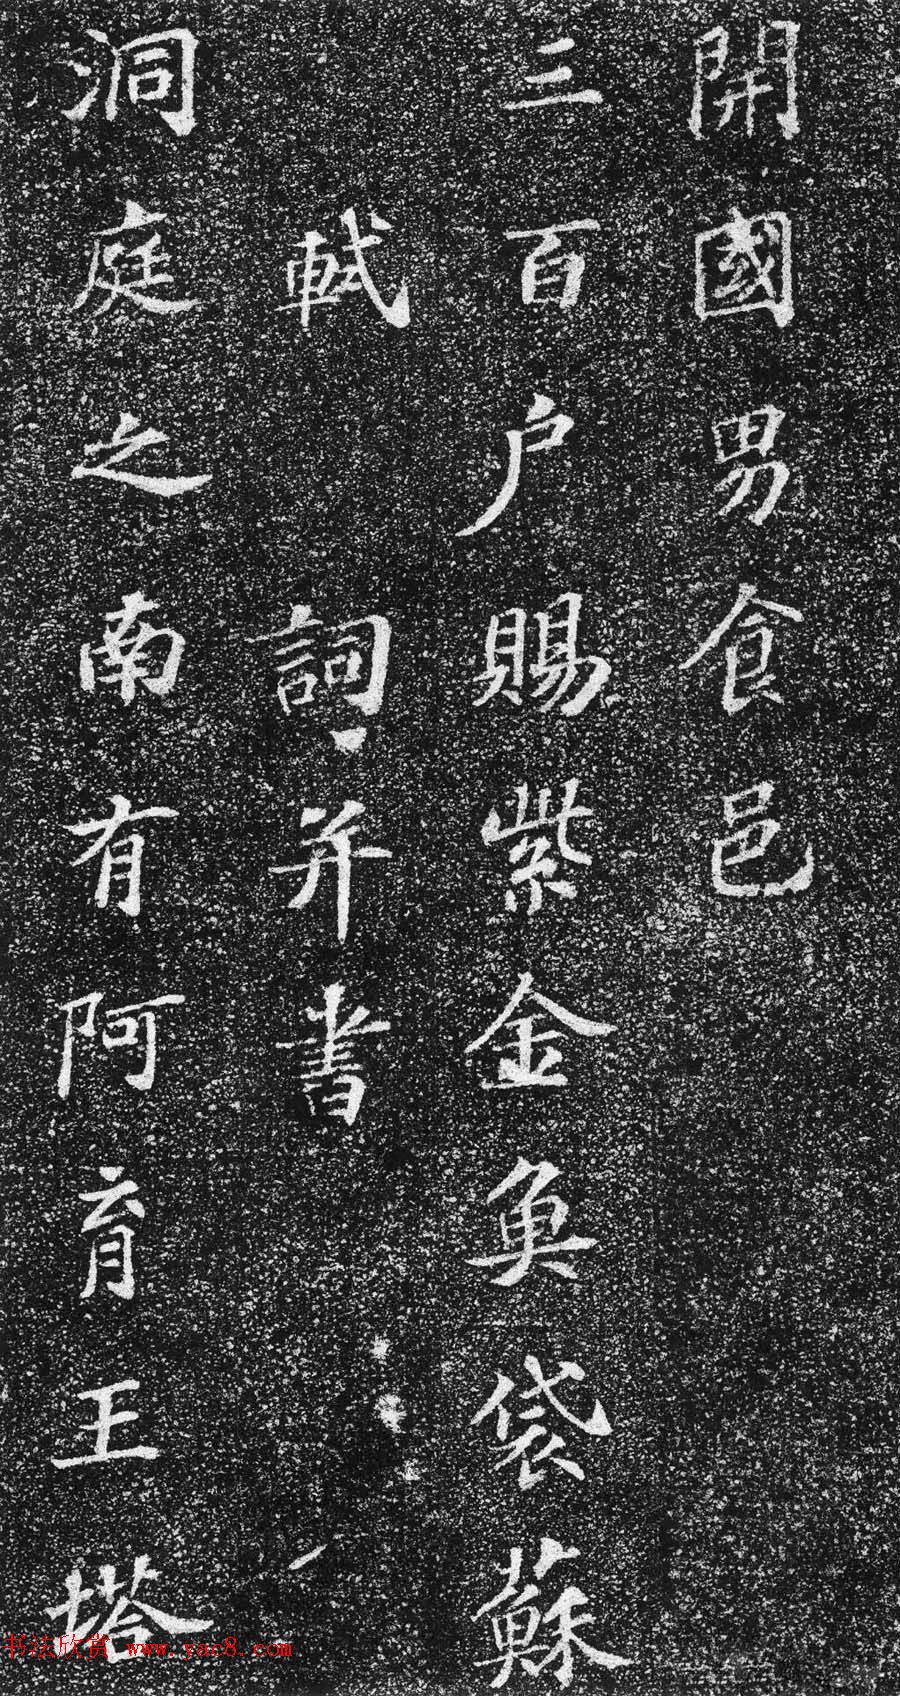 開國男食邑
三百户賜紫金魚袋蘇
軾 詞并書
洞庭之南有阿育王塔
书法欣赏 www.yac8.com